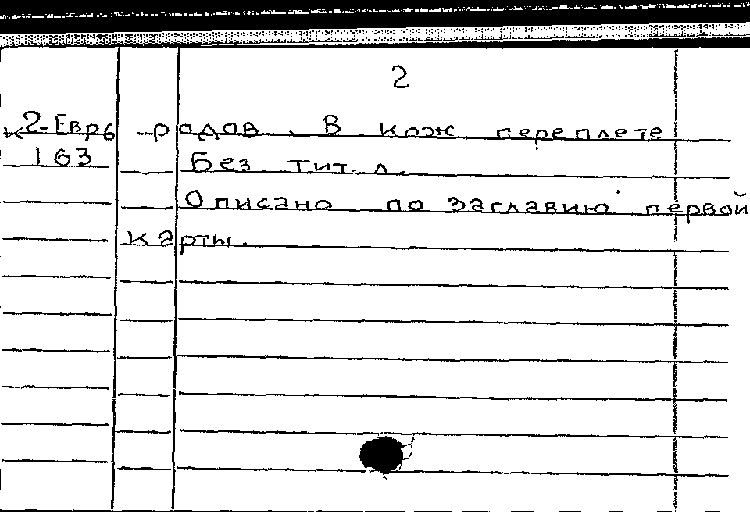 2
К 2-Евр6 -родов. В кож переплете
163 Без тит. л.
Описано по заглавию первой
карты.